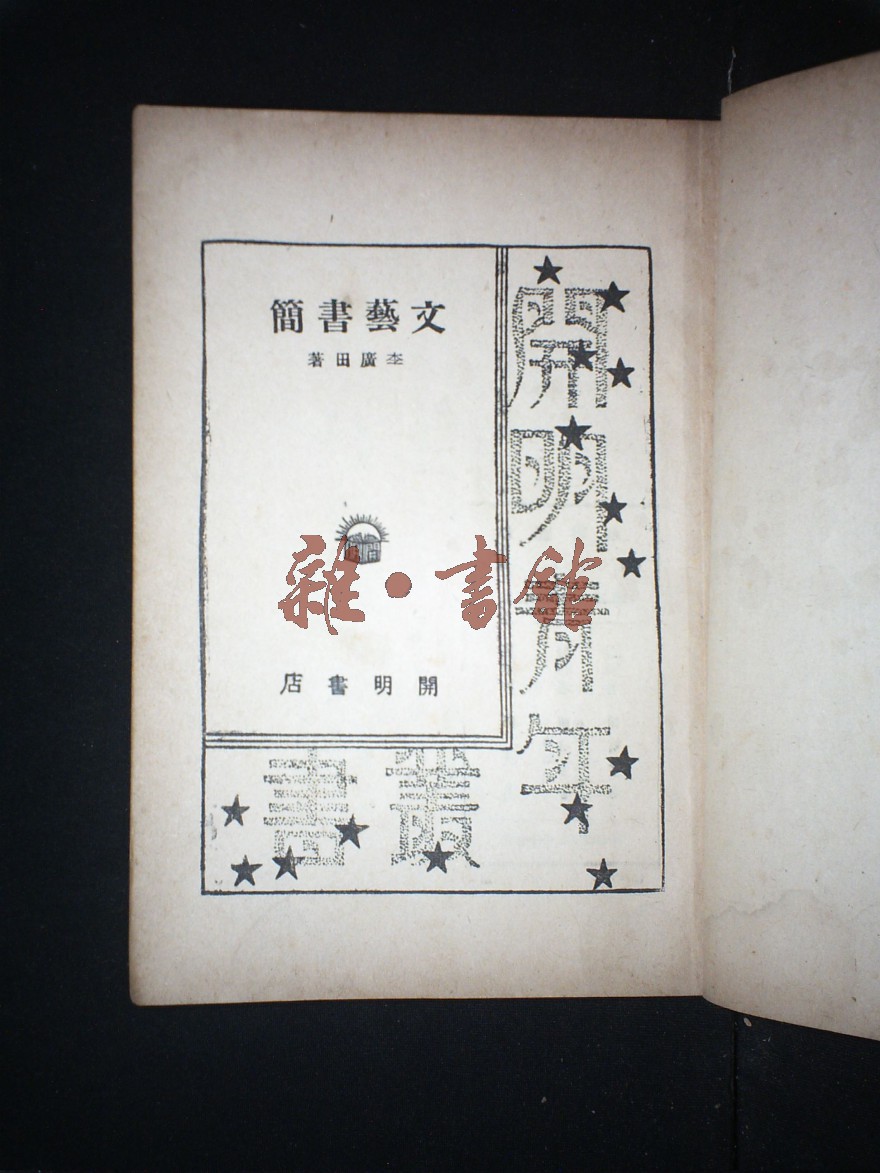 文藝書簡
李廣田著
開明書店
開明青年
叢書
雜·書館